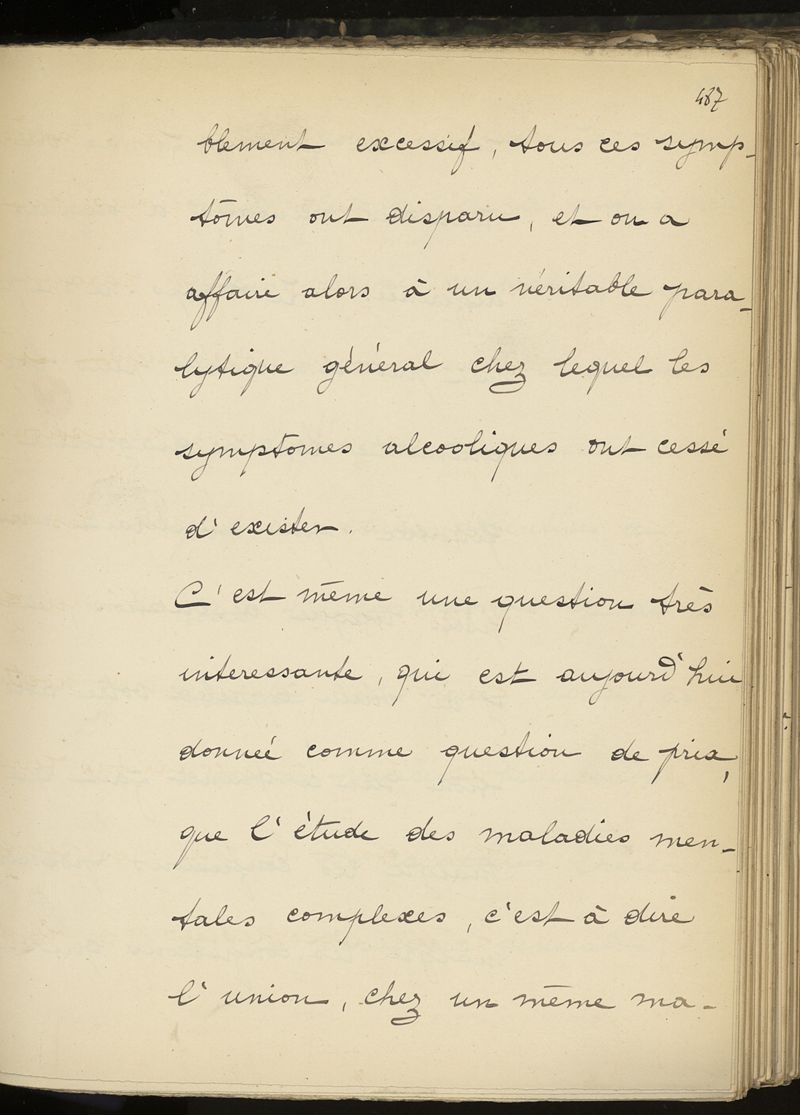 487
blement excessif, tous ces symp-
tômes ont disparu, et on a
affaire alors à un véritable para-
lytique général chez lequel les
symptomes alcooliques ont cessé
d'exister.
C'est même une question très
interessante, qui est aujourd'hui
donnée comme question de prix,
que l'étude des maladies men-
tales complexes, c'est à dire
l'union, chez un même ma-